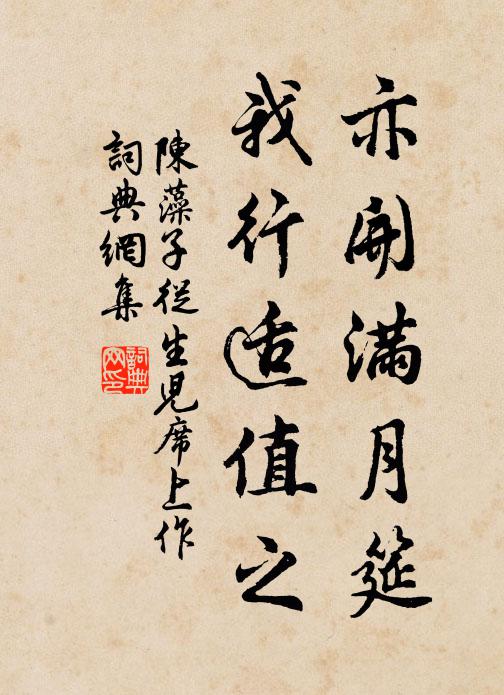 亦開滿月筵
我行适值之
陳藻子從生兒席上作
詞典網集
詞典
网印